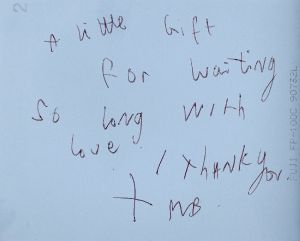 A little Gift
For waiting
so long with
love.
I thank
you.
X MB.
FUJI FP-100C 90732L
2